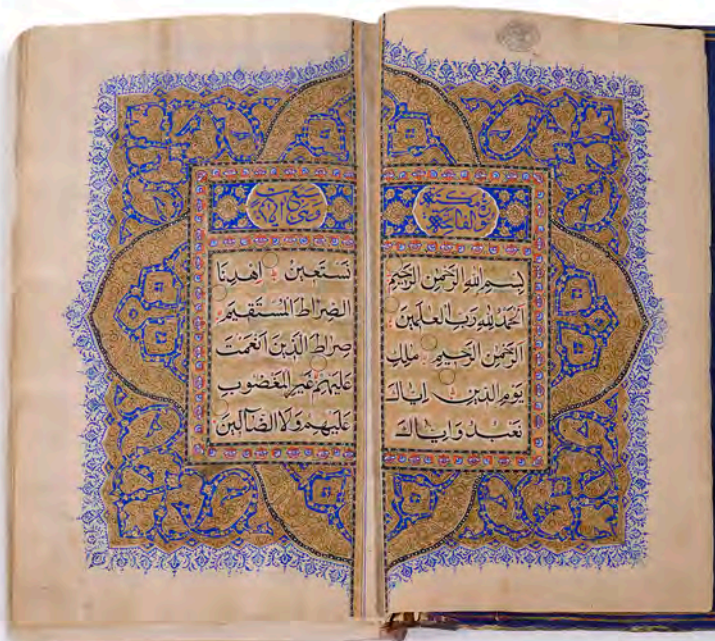 بِسْمِ اللهِ الرَّحْمٰنِ الرَّحِيْمِ
اَلْحَمْدُ لِلّٰهِ رَبِّ الْعٰلَمِيْنَ
الرَّحْمٰنِ الرَّحِيْمِ مٰلِكِ
يَوْمِ الدِّيْنِ اِيَّاكَ
نَعْبُدُ وَاِيَّاكَ
نَسْتَعِيْنُ اِهْدِنَا
الصِّرَاطَ الْمُسْتَقِيْمَ
صِرَاطَ الَّذِيْنَ اَنْعَمْتَ
عَلَيْهِمْ غَيْرِ الْمَغْضُوْبِ
عَلَيْهِمْ وَلَا الضَّآلِّيْنَ